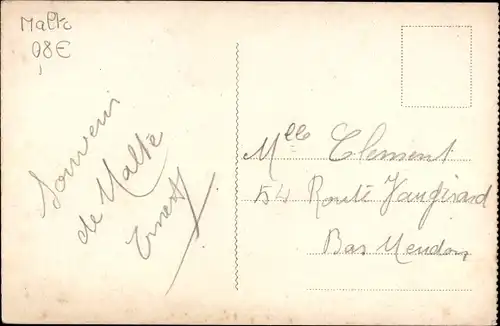 Malte
08€
Souvenir
de Malte
Ernest
Mlle Clement
54 Route Vaugirard
Bas Meudon